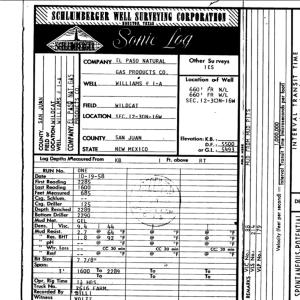 SCHLUMBERGER WELL SURVEYING CORPORATION
HOUSTON, TEXAS
Sonic Log
SCHLUMBERGER
COMPANY EL PASO NATURAL
GAS PRODUCTS CO.
WELL WILLIAMS # 1-A
FIELD WILDCAT
LOCATION SEC.12-30N-16W
COUNTY SAN JUAN
STATE NEW MEXICO
Other Surveys
IES
Location of Well
660' FR N/L
660' FR W/L
SEC.12-30N-16W
Elevation: K.B.
D.F. 5500
or G.L. 5493
COUNTY SAN JUAN
FIELD or
LOCATION WILDCAT
WELL WILLIAMS # 1-A
COMPANY EL PASO NAT GAS
PRODUCTS CO
Log Depths Measured From KB Ft. above RT
RUN No. ONE
Date 10-19-58
First Reading 2285
Last Reading 1600
Feet Measured 685
Csg. Schlum.
Csg. Driller 125
Depth Reached 2289
Bottom Driller 2290
Mud Nat.
Den. Visc. 9.4 44
Mud Resist. 2.7 @ 64 °F
" Res. BHT 1.8 @ 92 °F
" pH @ °F
" Wtr. Loss CC 30 min
" Rmf @ °F
Bit Size 7 7/8"
Spans:
1' 1600 To 2289
To
Opr. Rig Time
Truck No. 2616 FARM.
Recorded By
Witness
REMARKS
INTERVAL TRANSIT TIME
1,000,000
Velocity (feet per second)
Interval Transit Time (microseconds per foot)
SPONTANEOUS-POTENTIAL